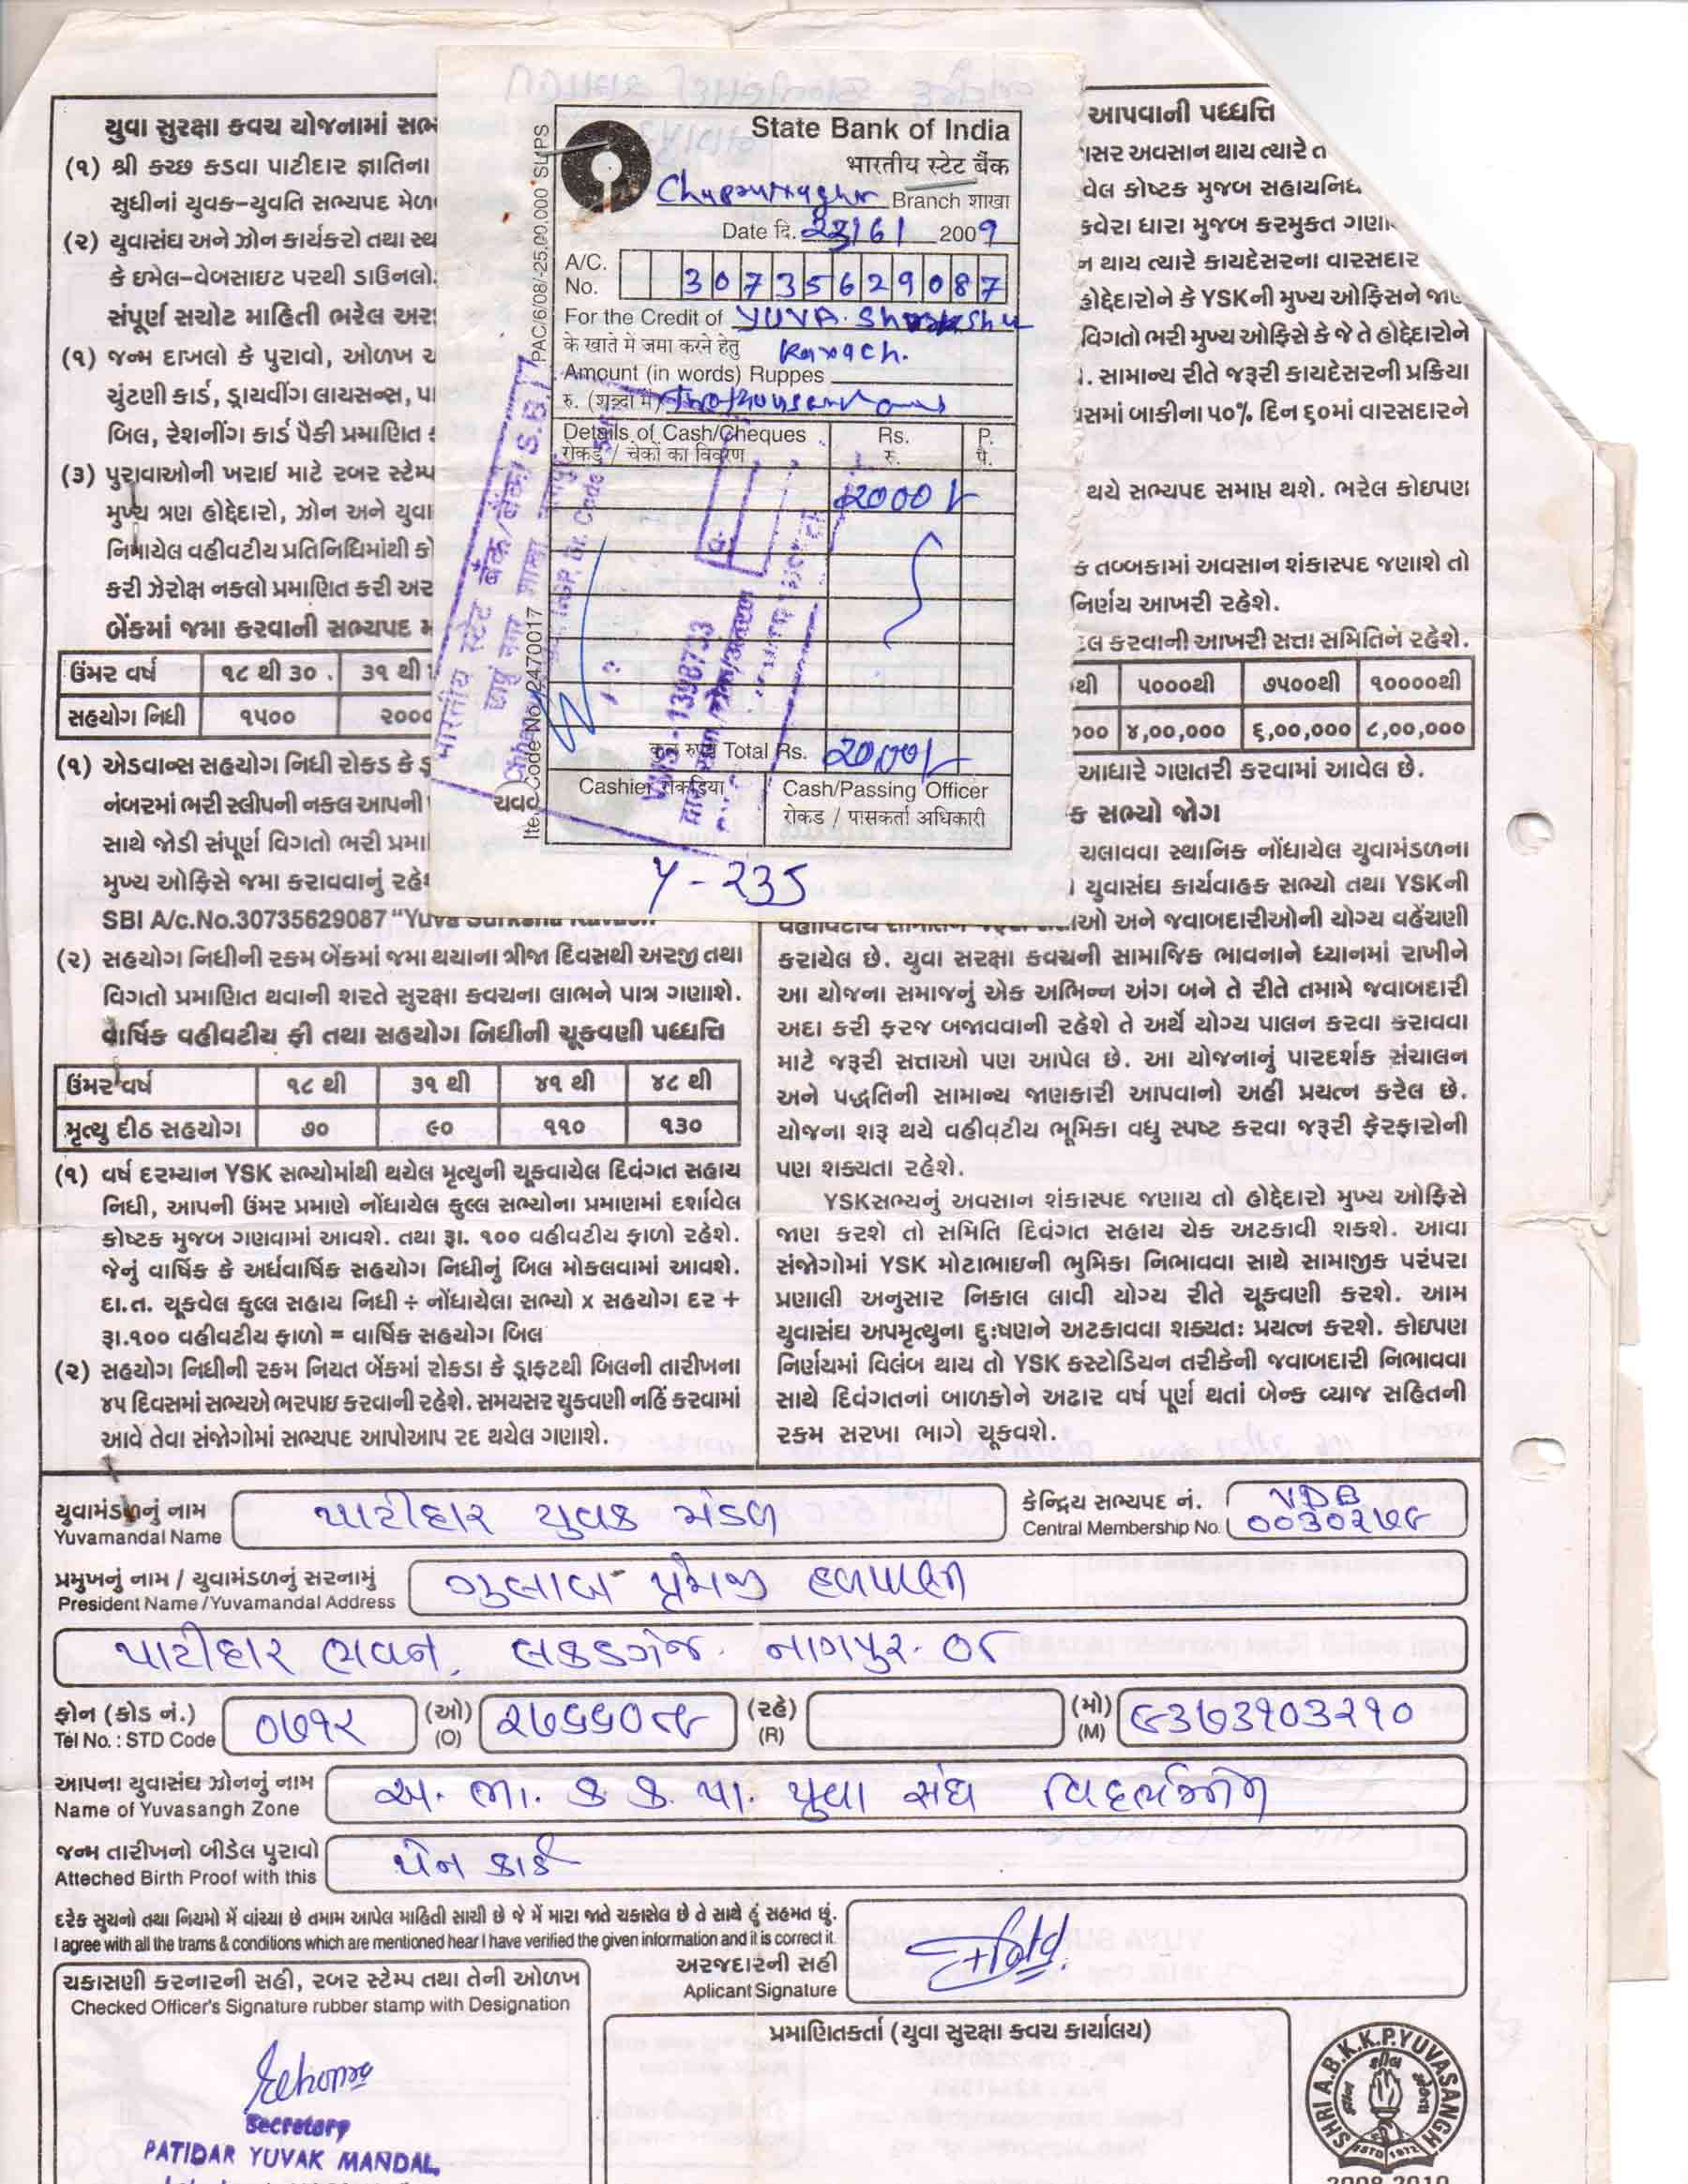 યુવા સુરક્ષા કવચ યોજનામાં સભ
(૧) શ્રી કચ્છ કડવા પાટીદાર જ્ઞાતિના
સુધીનાં યુવક-યુવતિ સભ્યપદ મેળ
(૨) યુવાસંઘ અને ઝોન કાર્યકરો તથા સ્થ
કે ઇમેલ-વેબસાઇટ પરથી ડાઉનલો
સંપૂર્ણ સચોટ માહિતી ભરેલ અર
(૧) જન્મ દાખલો કે પુરાવો, ઓળખ
ચુંટણી કાર્ડ, ડ્રાયવીંગ લાયસન્સ, પા
બિલ, રેશનીંગ કાર્ડ પૈકી પ્રમાણિત
(૩) પુરાવાઓની ખરાઇ માટે રબર સ્ટેમ્પ
મુખ્ય ત્રણ હોદ્દેદારો, ઝોન અને યુવા
નિમાયેલ વહીવટીય પ્રતિનિધિમાંથી કો
કરી ઝેરોક્ષ નકલો પ્રમાણિત કરી અર
બેંકમાં જમા કરવાની સભ્યપદ
ઉંમર વર્ષ ૧૮ થી ૩૦ ૩૧ થી
સહયોગ નિધી ૧૫૦૦ ૨૦૦૦
(૧) એડવાન્સ સહયોગ નિધી રોકડ કે
નંબરમાં ભરી સ્લીપની નકલ આપની
સાથે જોડી સંપૂર્ણ વિગતો ભરી પ્રમા
મુખ્ય ઓફિસે જમા કરાવવાનું રહે
SBI A/c.No.30735629087 “Yuva Surksha Kavach
(૨) સહયોગ નિધીની રકમ બેંકમાં જમા થયાના ત્રીજા દિવસથી અરજી તથા
વિગતો પ્રમાણિત થવાની શરતે સુરક્ષા કવચના લાભને પાત્ર ગણાશે.
વાર્ષિક વહીવટીય ફી તથા સહયોગ નિધીની ચૂકવણી પધ્ધત્તિ
ઉંમર વર્ષ ૧૮ થી ૩૧ થી ૪૧ થી ૪૮ થી
મૃત્યુ દીઠ સહયોગ ૭૦ ૯૦ ૧૧૦ ૧૩૦
(૧) વર્ષ દરમ્યાન YSK સભ્યોમાંથી થયેલ મૃત્યુની ચૂકવાયેલ દિવંગત સહાય
નિધી, આપની ઉંમર પ્રમાણે નોંધાયેલ કુલ્લ સભ્યોના પ્રમાણમાં દર્શાવેલ
કોષ્ટક મુજબ ગણવામાં આવશે. તથા રૂા. ૧૦૦ વહીવટીય ફાળો રહેશે.
જેનું વાર્ષિક કે અર્ધવાર્ષિક સહયોગ નિધીનું બિલ મોકલવામાં આવશે.
દા.ત. ચૂકવેલ કુલ્લ સહાય નિધી ÷ નોંધાયેલા સભ્યો x સહયોગ દર +
રૂા.૧૦૦ વહીવટીય ફાળો = વાર્ષિક સહયોગ બિલ
(૨) સહયોગ નિધીની રકમ નિયત બેંકમાં રોકડા કે ડ્રાફટથી બિલની તારીખના
૪૫ દિવસમાં સભ્યએ ભરપાઇ કરવાની રહેશે. સમયસર ચુકવણી નહિં કરવામાં
આવે તેવા સંજોગોમાં સભ્યપદ આપોઆપ રદ થયેલ ગણાશે.
State Bank of India
भारतीय स्टेट बैंक
Branch शाखा
Date दि. 23/6/ 2009
A/C. No. 30735629087
For the Credit of YUVA
के खाते में जमा करने हेतु Kavach.
Amount (in words) Ruppes
रु. (शब्दों में)
Details of Cash/Cheques Rs. P.
रोकड़ / चेकों का विवरण रु. पै.
2000/-
कुल रुपये Total Rs. 2000/-
Cashier रोकड़िया Cash/Passing Officer
रोकड / पासकर्ता अधिकारी
PAC/6/08/-25,00,000 SLIPS
Item Code No. 2470017
Y-235
આપવાની પધ્ધત્તિ
સર અવસાન થાય ત્યારે ત
વેલ કોષ્ટક મુજબ સહાયનિધ
કવેરા ધારા મુજબ કરમુક્ત ગણા
ન થાય ત્યારે કાયદેસરના વારસદાર
હોદ્દેદારોને કે YSKની મુખ્ય ઓફિસને જા
વિગતો ભરી મુખ્ય ઓફિસે કે જે તે હોદ્દેદારોને
. સામાન્ય રીતે જરૂરી કાયદેસરની પ્રક્રિયા
સમાં બાકીના ૫૦% દિન ૬૦માં વારસદારને
થયે સભ્યપદ સમાપ્ત થશે. ભરેલ કોઇપણ
ક તબ્બકામાં અવસાન શંકાસ્પદ જણાશે તો
નિર્ણય આખરી રહેશે.
લ કરવાની આખરી સત્તા સમિતિને રહેશે.
થી ૫૦૦૦થી ૭૫૦૦થી ૧૦૦૦૦થી
૦૦૦ ૪,૦૦,૦૦૦ ૬,૦૦,૦૦૦ ૮,૦૦,૦૦૦
આધારે ગણતરી કરવામાં આવેલ છે.
ક સભ્યો જોગ
ચલાવવા સ્થાનિક નોંધાયેલ યુવામંડળના
યુવાસંઘ કાર્યવાહક સભ્યો તથા YSKની
ઓ અને જવાબદારીઓની યોગ્ય વહેંચણી
કરાયેલ છે. યુવા સરક્ષા કવચની સામાજિક ભાવનાને ધ્યાનમાં રાખીને
આ યોજના સમાજનું એક અભિન્ન અંગ બને તે રીતે તમામે જવાબદારી
અદા કરી ફરજ બજાવવાની રહેશે તે અર્થે યોગ્ય પાલન કરવા કરાવવા
માટે જરૂરી સત્તાઓ પણ આપેલ છે. આ યોજનાનું પારદર્શક સંચાલન
અને પદ્ધતિની સામાન્ય જાણકારી આપવાનો અહી પ્રયત્ન કરેલ છે.
યોજના શરૂ થયે વહીવટીય ભૂમિકા વધુ સ્પષ્ટ કરવા જરૂરી ફેરફારોની
પણ શક્યતા રહેશે.
YSKસભ્યનું અવસાન શંકાસ્પદ જણાય તો હોદ્દેદારો મુખ્ય ઓફિસે
જાણ કરશે તો સમિતિ દિવંગત સહાય ચેક અટકાવી શકશે. આવા
સંજોગોમાં YSK મોટાભાઇની ભુમિકા નિભાવવા સાથે સામાજીક પરંપરા
પ્રણાલી અનુસાર નિકાલ લાવી યોગ્ય રીતે ચૂકવણી કરશે. આમ
યુવાસંઘ અપમૃત્યુના દુઃષણને અટકાવવા શક્યતઃ પ્રયત્ન કરશે. કોઇપણ
નિર્ણયમાં વિલંબ થાય તો YSK કસ્ટોડિયન તરીકેની જવાબદારી નિભાવવા
સાથે દિવંગતનાં બાળકોને અઢાર વર્ષ પૂર્ણ થતાં બેન્ક વ્યાજ સહિતની
રકમ સરખા ભાગે ચૂકવશે.
યુવામંડળનું નામ પાટીદાર યુવક મંડળ કેન્દ્રિય સભ્યપદ નં. VDB
Yuvamandal Name Central Membership No. ૦૦૩૦૨૭૯
પ્રમુખનું નામ / યુવામંડળનું સરનામું ગુલાબ પ્રેમજી
President Name /Yuvamandal Address
પાટીદાર ભવન, લકડગંજ. નાગપુર. ૦૮
ફોન (કોડ નં.) ૦૭૧૨ (ઓ) ૨૭૬૬૦૯૬ (રહે) (મો) ૯૩૭૩૧૦૩૨૧૦
Tel No. : STD Code (O) (R) (M)
આપના યુવાસંઘ ઝોનનું નામ અ. ભા. ક. ક. પા. યુવા સંઘ વિદર્ભઝોન
Name of Yuvasangh Zone
જન્મ તારીખનો બીડેલ પુરાવો પેન કાર્ડ
Atteched Birth Proof with this
દરેક સુચનો તથા નિયમો મેં વાંચ્યા છે તમામ આપેલ માહિતી સાચી છે જે મેં મારા જાતે ચકાસેલ છે તે સાથે હું સહમત છું.
I agree with all the trams & conditions which are mentioned hear I have verified the given information and it is correct it.
અરજદારની સહી
Aplicant Signature
ચકાસણી કરનારની સહી, રબર સ્ટેમ્પ તથા તેની ઓળખ
Checked Officer's Signature rubber stamp with Designation
Secretary
PATIDAR YUVAK MANDAL
પ્રમાણિતકર્તા (યુવા સુરક્ષા કવચ કાર્યાલય)
SHRI A.B.K.K.P.YUVASANGH
ESTD 1972
2008-2010